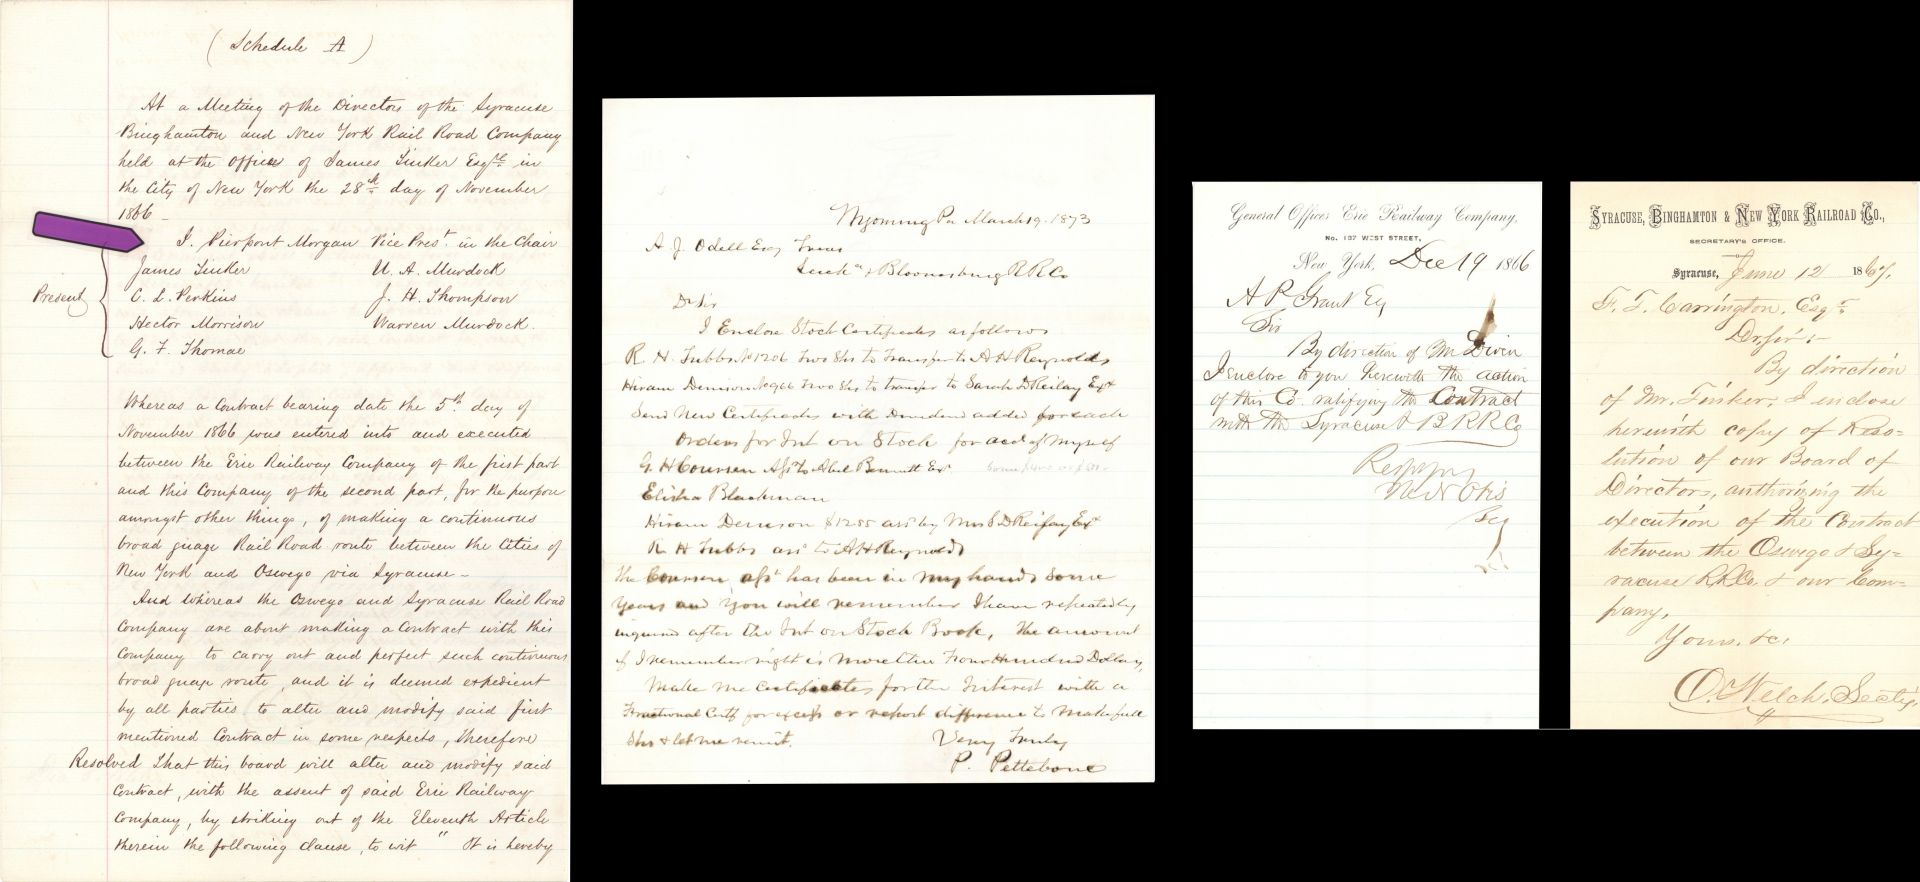 ( Schedule A )
At a Meeting of the Directors of the Syracuse
Binghamton and New York Rail Road Company
held at the office of James Tinker Esqre in
the City of New York the 28th day of November
1866 –
J. Pierpont Morgan Vice Prest. in the Chair
James Tinker U. A. Murdock
Present C. L. Perkins J. H. Thompson
Hector Morrison Warren Murdock.
G. F. Thomae
Whereas a Contract bearing date the 5th day of
November 1866 was entered into and executed
between the Erie Railway Company of the first part
and this Company of the second part, for the purpose
amongst other things, of making a continuous
broad guage Rail Road route between the Cities of
New York and Oswego via Syracuse –
And whereas the Oswego and Syracuse Rail Road
Company are about making a Contract with this
Company to carry out and perfect such continuous
broad guage route, and it is deemed expedient
by all parties to alter and modify said first
mentioned Contract in some respects, therefore
Resolved That this board will alter and modify said
Contract, with the assent of said Erie Railway
Company, by striking out of the Eleventh Article
therein the following clause, to wit " It is hereby
Wyoming Pa March 19. 1873
A J. Odell Esq Treas
Lacka & Bloomsburg R R Co
D Sir
I Enclose Stock Certificates as follows
R. H. Tubbs No 1206 two Shs to Transfer to A H Reynolds
Hiram Denison No 966 two Shs to transfer to Sarah D Reifay Ext
Send New Certificates with Dividend added for each
Orders for Int on Stock for acct of Myself
G. H Coursen Asst to Abel Bennett Esq.
Elisha Blackman
Hiram Denison $1255 asst by Mrs S D Reifay Ext
R H Tubbs asst to A H Reynolds
The Coursen asst has been in my hands some
years and you will remember I have repeatedly
inquired after the Int on Stock Book, the amount
if I remember right is more than Four Hundred Dollars,
Make me Certificates for the Interest with a
Fractional Certf for excess or report difference to make full
Shs & let me remit.
Very Truly
P. Pettebone
General Offices Erie Railway Company.
No. 187 WEST STREET,
New York, Dec 19 1866
A P Grant Esq
Sir
By direction of Mr Diven
I enclose to you herewith the action
of this Co. ratifying the Contract
with the Syracuse & B R R Co
H N Otis
Secy
SYRACUSE, BINGHAMTON & NEW YORK RAILROAD CO.,
SECRETARY'S OFFICE.
Syracuse, June 12 1867.
F. T. Carrington, Esqr
Dr Sir :–
By direction
of Mr. Tinker, I enclose
herewith copy of Reso=
lution of our Board of
Directors, authorizing the
execution of the Contract
between the Oswego & Sy=
racuse R R Co. & our Com=
pany,
Yours. &c.
O. Welch, Sectry.